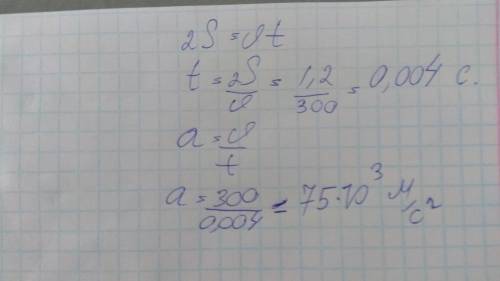 2S = υt
t = 2S/υ = 1,2/300 = 0,004 с.
a = υ/t
a = 300/0,004 = 75·10³ м/с²